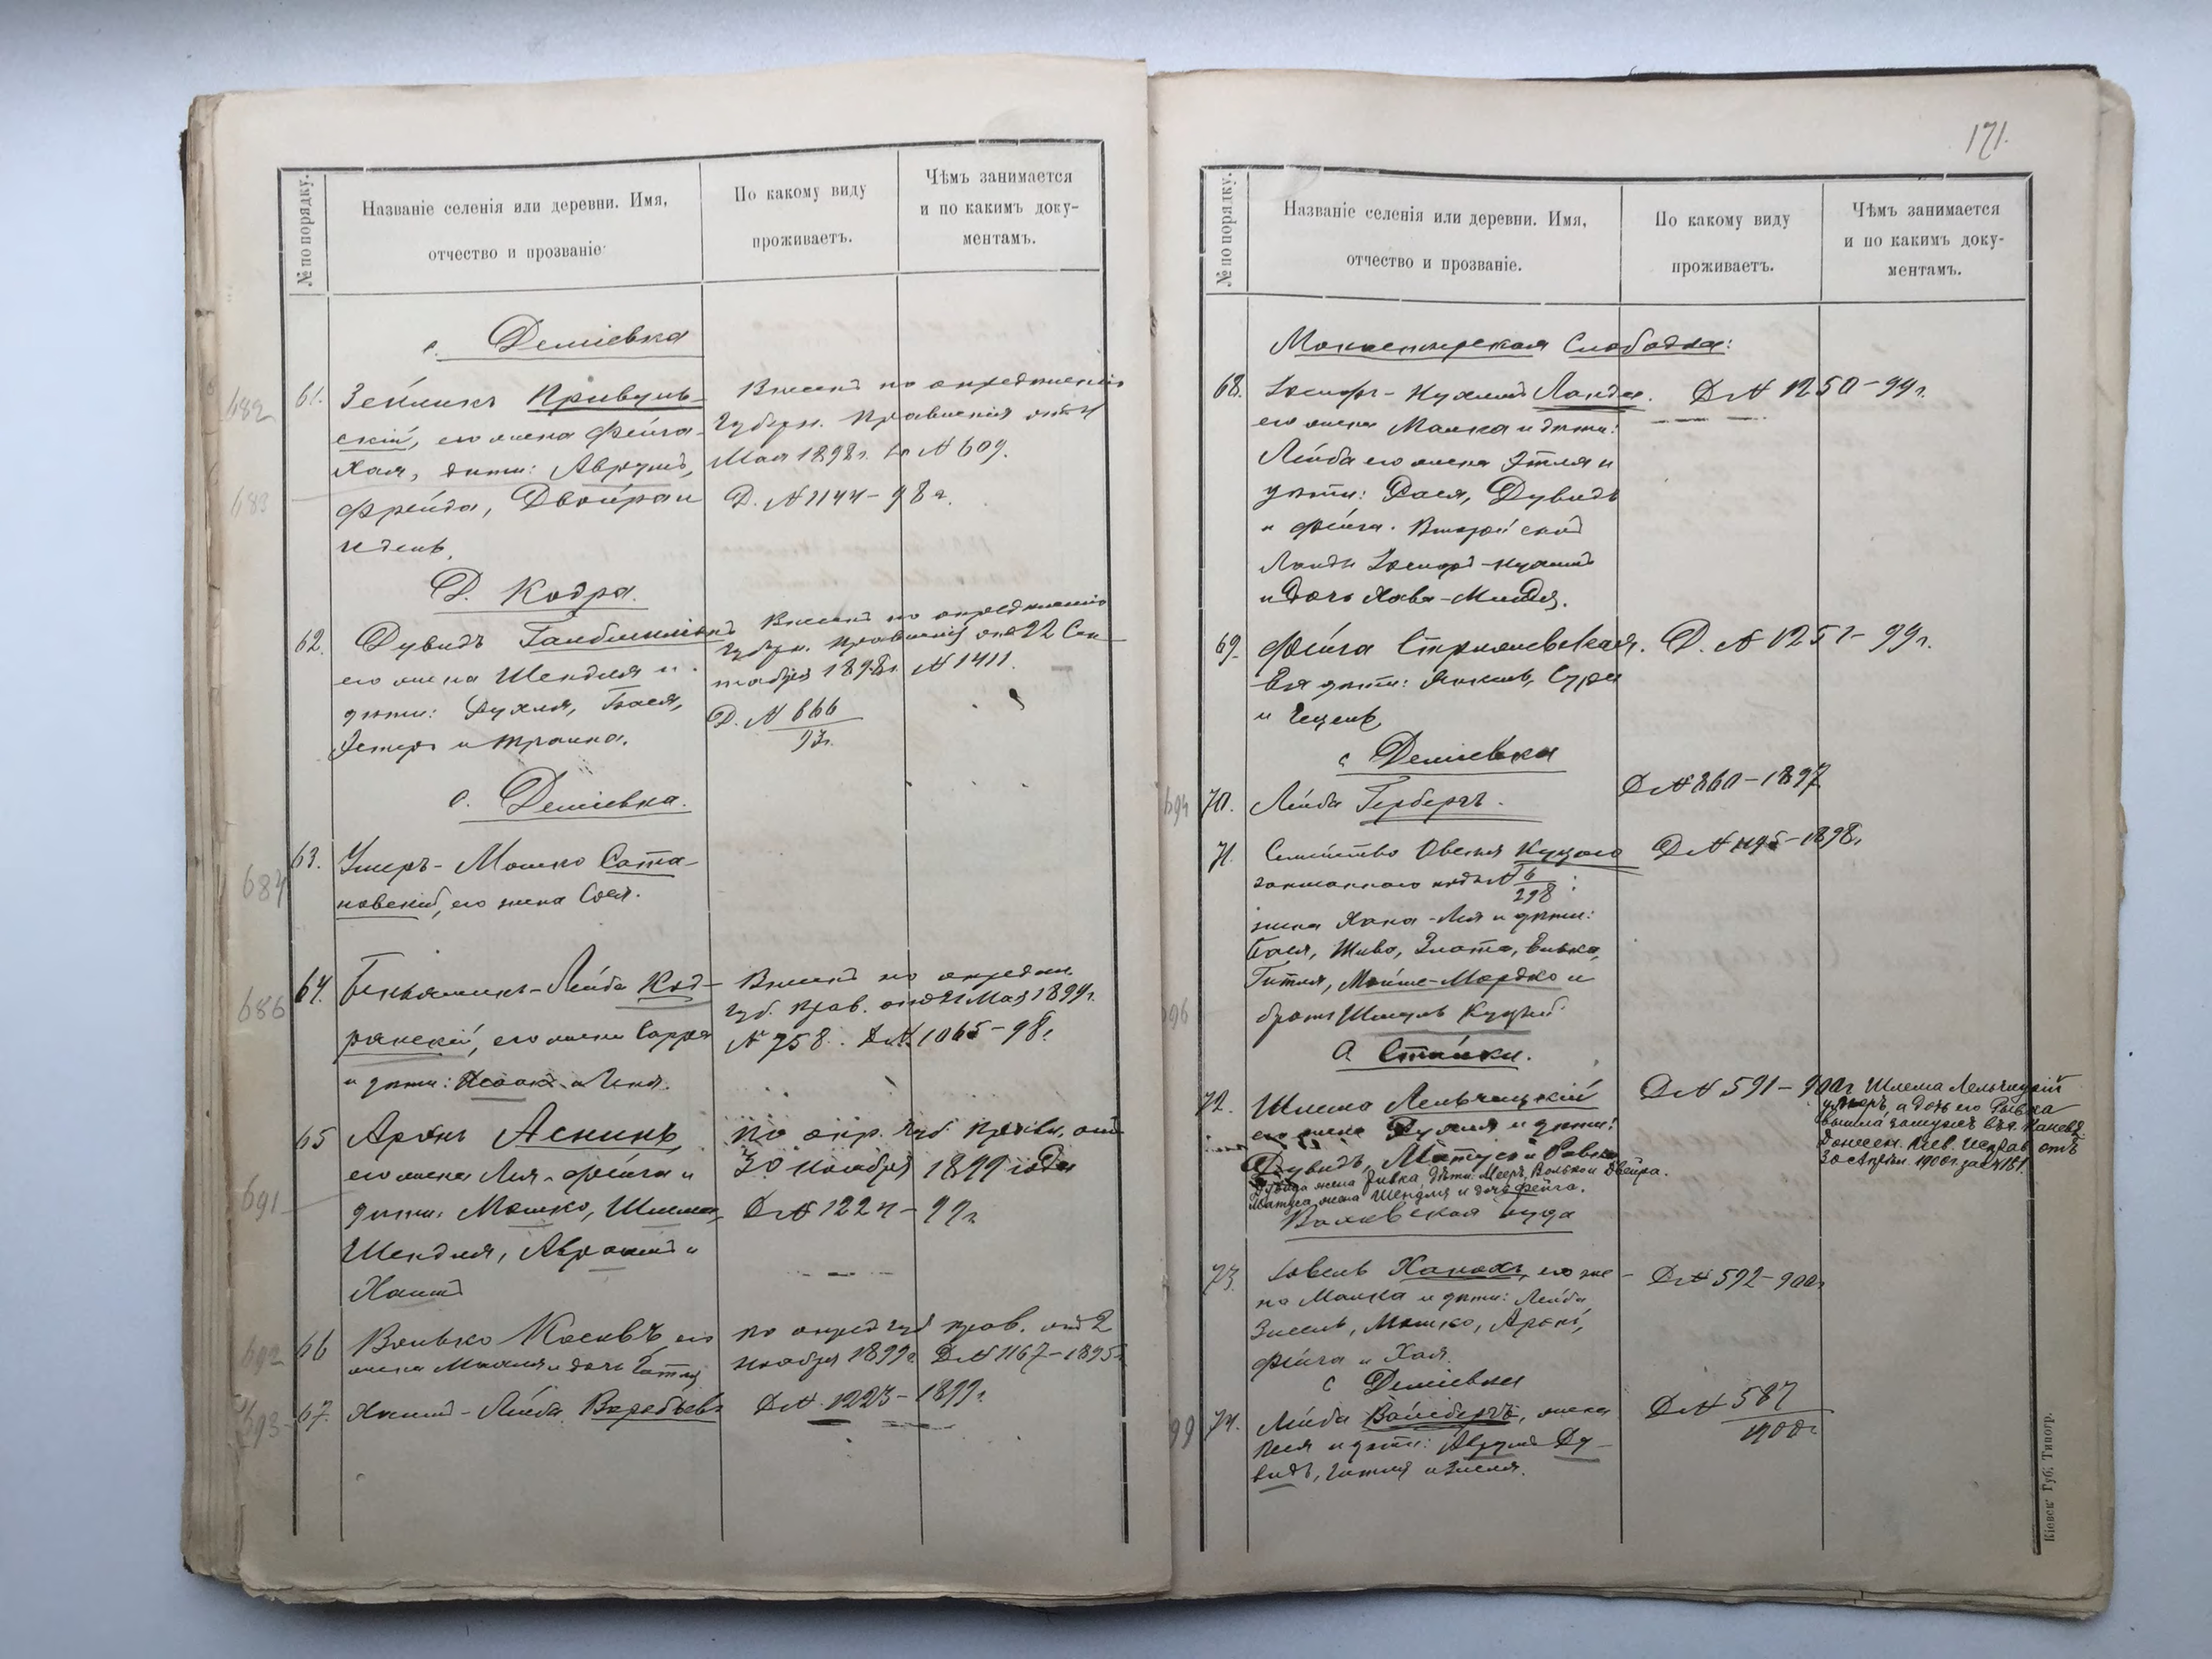 № по порядку.
Названіе селенія или деревни. Имя,
отчество и прозваніе.
По какому виду
проживаетъ.
Чѣмъ занимается
и по какимъ доку-
ментамъ.
с. Деміевка
682
61.
Зейликъ Кривуль-
скій, его жена Фейга-
Хая, дѣти: Аврумъ,
Фрейда, Двойра и
683
Внесенъ по опредѣленію
Губерн. Правленія отъ 4
Мая 1898г. за № 609.
Д. № 1144-98г.
Д. Кодра.
62.
Дувидъ
его жена Шендля и
дѣти: Рухля, Бася,
Эстеръ и
Внесенъ по опредѣленію
Губерн. Правленія отъ 22 Сен-
тября 1898г. № 1411.
Д. № 666
93г.
с. Деміевка.
684
63.
Ушеръ-Мошко Сата-
новскій, его жена Сося.
686
64.
Беньяминъ-Лейба Код-
рянскій, его жена Сарра
и дѣти: Исаакъ и
Внесенъ по опредѣл.
Губ. Прав. отъ 21 Мая 1899г.
№ 758. Д№ 1065-98г.
691
65
Аронъ Аснинъ,
его жена Лея-Фейга и
дѣти: Мошко, Шлема,
Шендля, Аврамъ и
Хаимъ
По опр. Губ. Правл. отъ
30 Ноября 1899 года
Д№ 1224-99г.
692
66
Волько Косовъ, его
жена Михля и дочь
по опред Губ прав. отъ 2
Ноября 1899г. Д№ 1167-1895г.
693
67.
Хаимъ-Лейба Воробьевъ
Д№ 1223-1899г.
171.
№ по порядку.
Названіе селенія или деревни. Имя,
отчество и прозваніе.
По какому виду
проживаетъ.
Чѣмъ занимается
и по какимъ доку-
ментамъ.
Монастырская Слободка:
68.
Іосифъ-Нухимъ Ланда.
его жена Малка и дѣти:
Лейба его жена Этля и
дѣти: Рася, Дувидъ
и Фейга. Второй сынъ
Ланды Іосифъ-Нухимъ
и дочь Хава-
Д№ 1250-99г.
69.
Фейга
Ея дѣти: Янкель, Сура
и
Д. № 1251-99г.
с Деміевка
694
70.
Лейба Герберъ.
Д№ 860-1897
71.
Семейство Овсея Куцого
записаннаго подъ № 6
298
жена Хана-Лея и дѣти:
Бася, Злата,
Гитля, Мойше-Мордко и
братъ Шмуль Куцый.
Д№ 1195-1898г.
696
С Стайки.
72.
Шлема Лельчицкій
его жена Рухля и дѣти:
Дувидъ, Матусъ и Ривка
Дувида жена Ривка, дѣти: Мееръ, Волько и Двейра.
Матуса жена Шендля и дочь Фейга.
Д№ 591-900г.
Шлема Лельчицкій
умеръ, а дочь его Ривка
вышла замужъ въ г. Каневъ
Донесен. Кіев. Исправ. отъ
30 Апрѣля 1906г. за №
73.
Іовель Ханохъ, его же-
на Малка и дѣти: Лейба
Зисель, Мошко, Аронъ,
Фейга и Хая.
Д№ 592-900г.
с Деміевка
99
74.
Лейба Вайсбергъ, жена
Песя и дѣти: Аврумъ Ду-
видъ, Гитля и Зисля.
Д№ 587
1900г
Кіевск. Губ. Типогр.